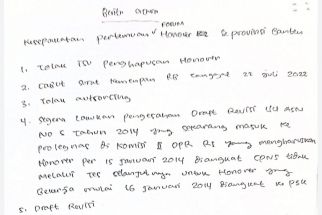 Berita acara
Kesepakatan pertemuan FORUM Honorer K2 Se provinsi Banten
1. Tolak isu penghapusan Honorer
2. Cabut Surat Kemenpan RB tanggal 22 Juli 2022
3. Tolak outsorcing
4. Segera lakukan pengesahan Draft Revisi UU ASN
No 5 Tahun 2014 yang sekarang masuk ke
prolegnas di Komisi II DPR RI yang mengharuskan
Honorer per 15 Januari 2014 Diangkat CPNS tidak
Melalui Tes selanjutnya untuk Honorer yang
Bekerja mulai 16 Januari 2014 Diangkat ke P3K
5. Draft Revisi